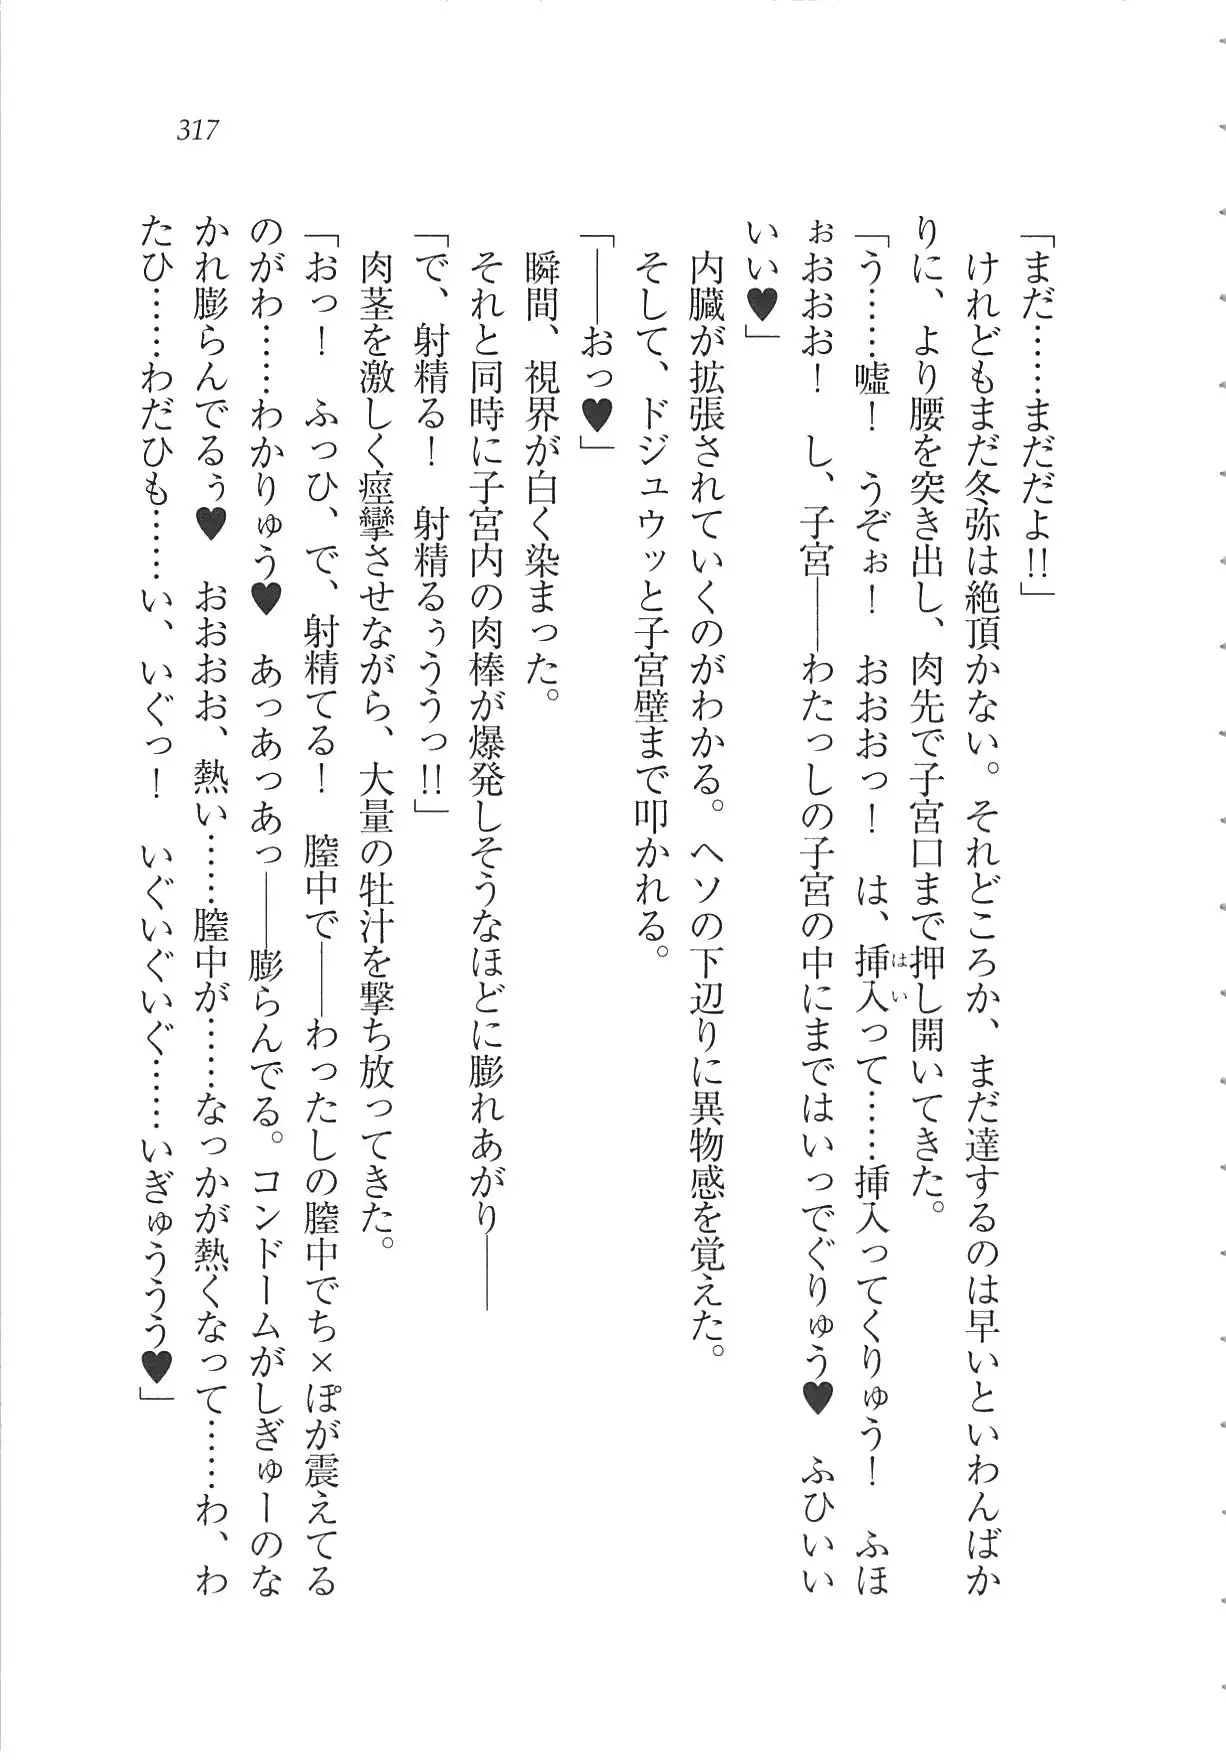 317
「まだ……まだだよ!!」
けれどもまだ冬弥は絶頂かない。それどころか、まだ達するのは早いといわんばか
りに、より腰を突き出し、肉先で子宮口まで押し開いてきた。
「う……嘘！　うぞぉ！　おおおっ！　は、挿入って……挿入ってくりゅう！　ふほ
ぉおおお！　し、子宮――わたっしの子宮の中にまではいっでぐりゅう♥　ふひいい
いい♥」
内臓が拡張されていくのがわかる。ヘソの下辺りに異物感を覚えた。
そして、ドジュウッと子宮壁まで叩かれる。
「――おっ♥」
瞬間、視界が白く染まった。
それと同時に子宮内の肉棒が爆発しそうなほどに膨れあがり――
「で、射精る！　射精るぅううっ!!」
肉茎を激しく痙攣させながら、大量の牡汁を撃ち放ってきた。
「おっ！　ふっひ、で、射精てる！　膣中で――わったしの膣中でち×ぽが震えてる
のがわ……わかりゅう♥　あっあっあっ――膨らんでる。コンドームがしぎゅーのな
かれ膨らんでるぅ♥　おおおお、熱い……膣中が……なっかが熱くなって……わ、わ
たひ……わだひも……い、いぐっ！　いぐいぐいぐ……いぎゅううう♥」